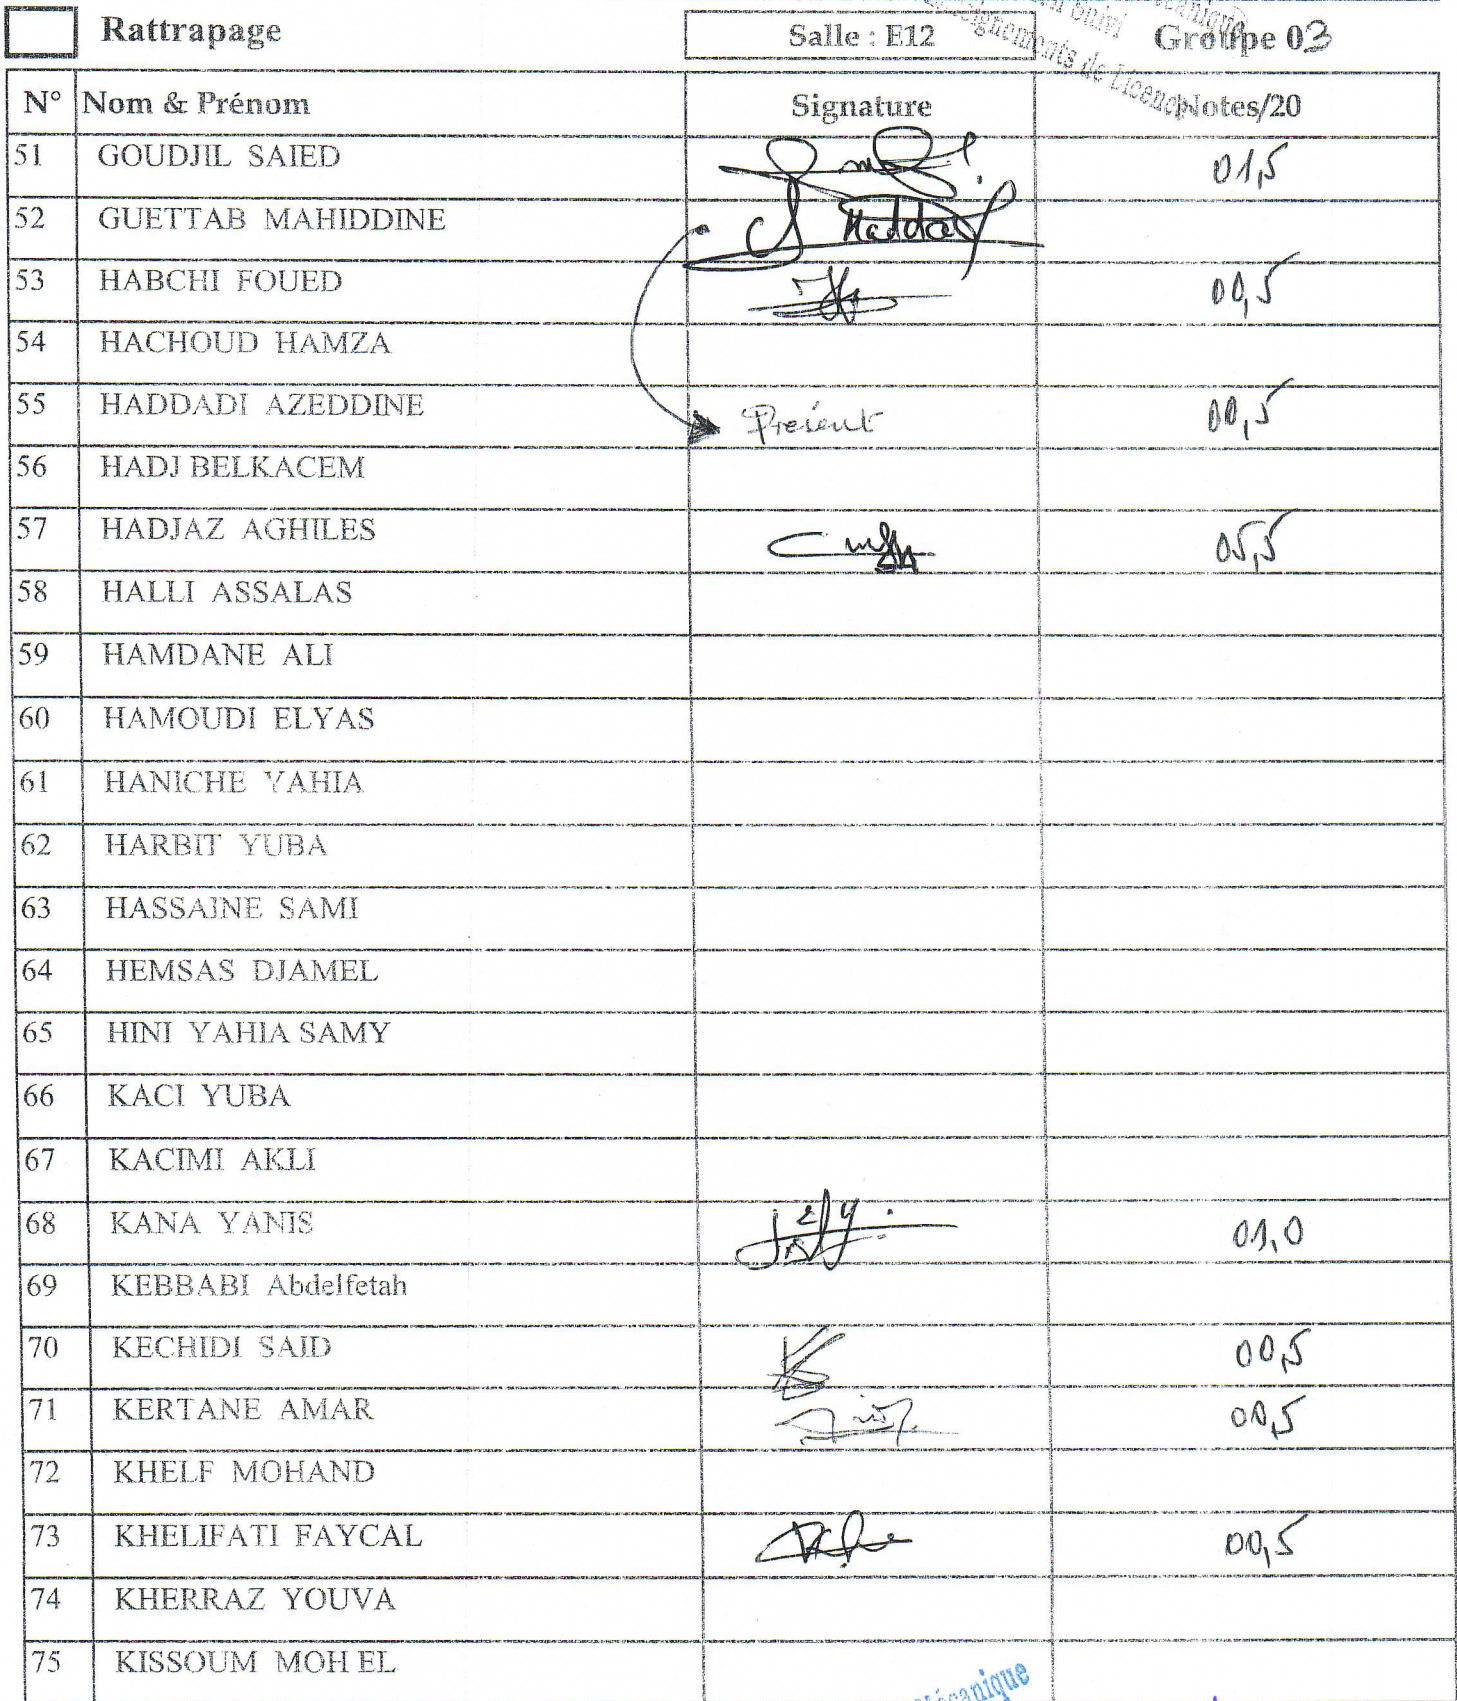 Rattrapage Salle : E12 Groupe 03
Enseignements de Licence
N° Nom & Prénom Signature Notes/20
51 GOUDJIL SAIED 01,5
52 GUETTAB MAHIDDINE Haddad
53 HABCHI FOUED 00,5
54 HACHOUD HAMZA
55 HADDADI AZEDDINE Présent 00,5
56 HADJ BELKACEM
57 HADJAZ AGHILES 05,5
58 HALLI ASSALAS
59 HAMDANE ALI
60 HAMOUDI ELYAS
61 HANICHE YAHIA
62 HARBIT YUBA
63 HASSAINE SAMI
64 HEMSAS DJAMEL
65 HINI YAHIA SAMY
66 KACI YUBA
67 KACIMI AKLI
68 KANA YANIS 01,0
69 KEBBABI Abdelfetah
70 KECHIDI SAID 00,5
71 KERTANE AMAR 00,5
72 KHELF MOHAND
73 KHELIFATI FAYCAL 00,5
74 KHERRAZ YOUVA
75 KISSOUM MOH EL